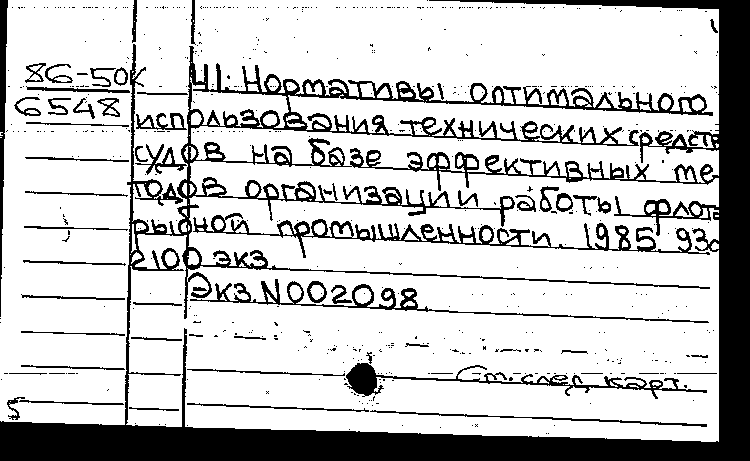 86-50К
6548
Ч.1: Нормативы оптимального
использования технических средств
судов на базе эффективных ме-
тодов организации работы флота
рыбной промышленности. 1985. 93с
2100 экз.
Экз. N002098.
См. след. карт.
5